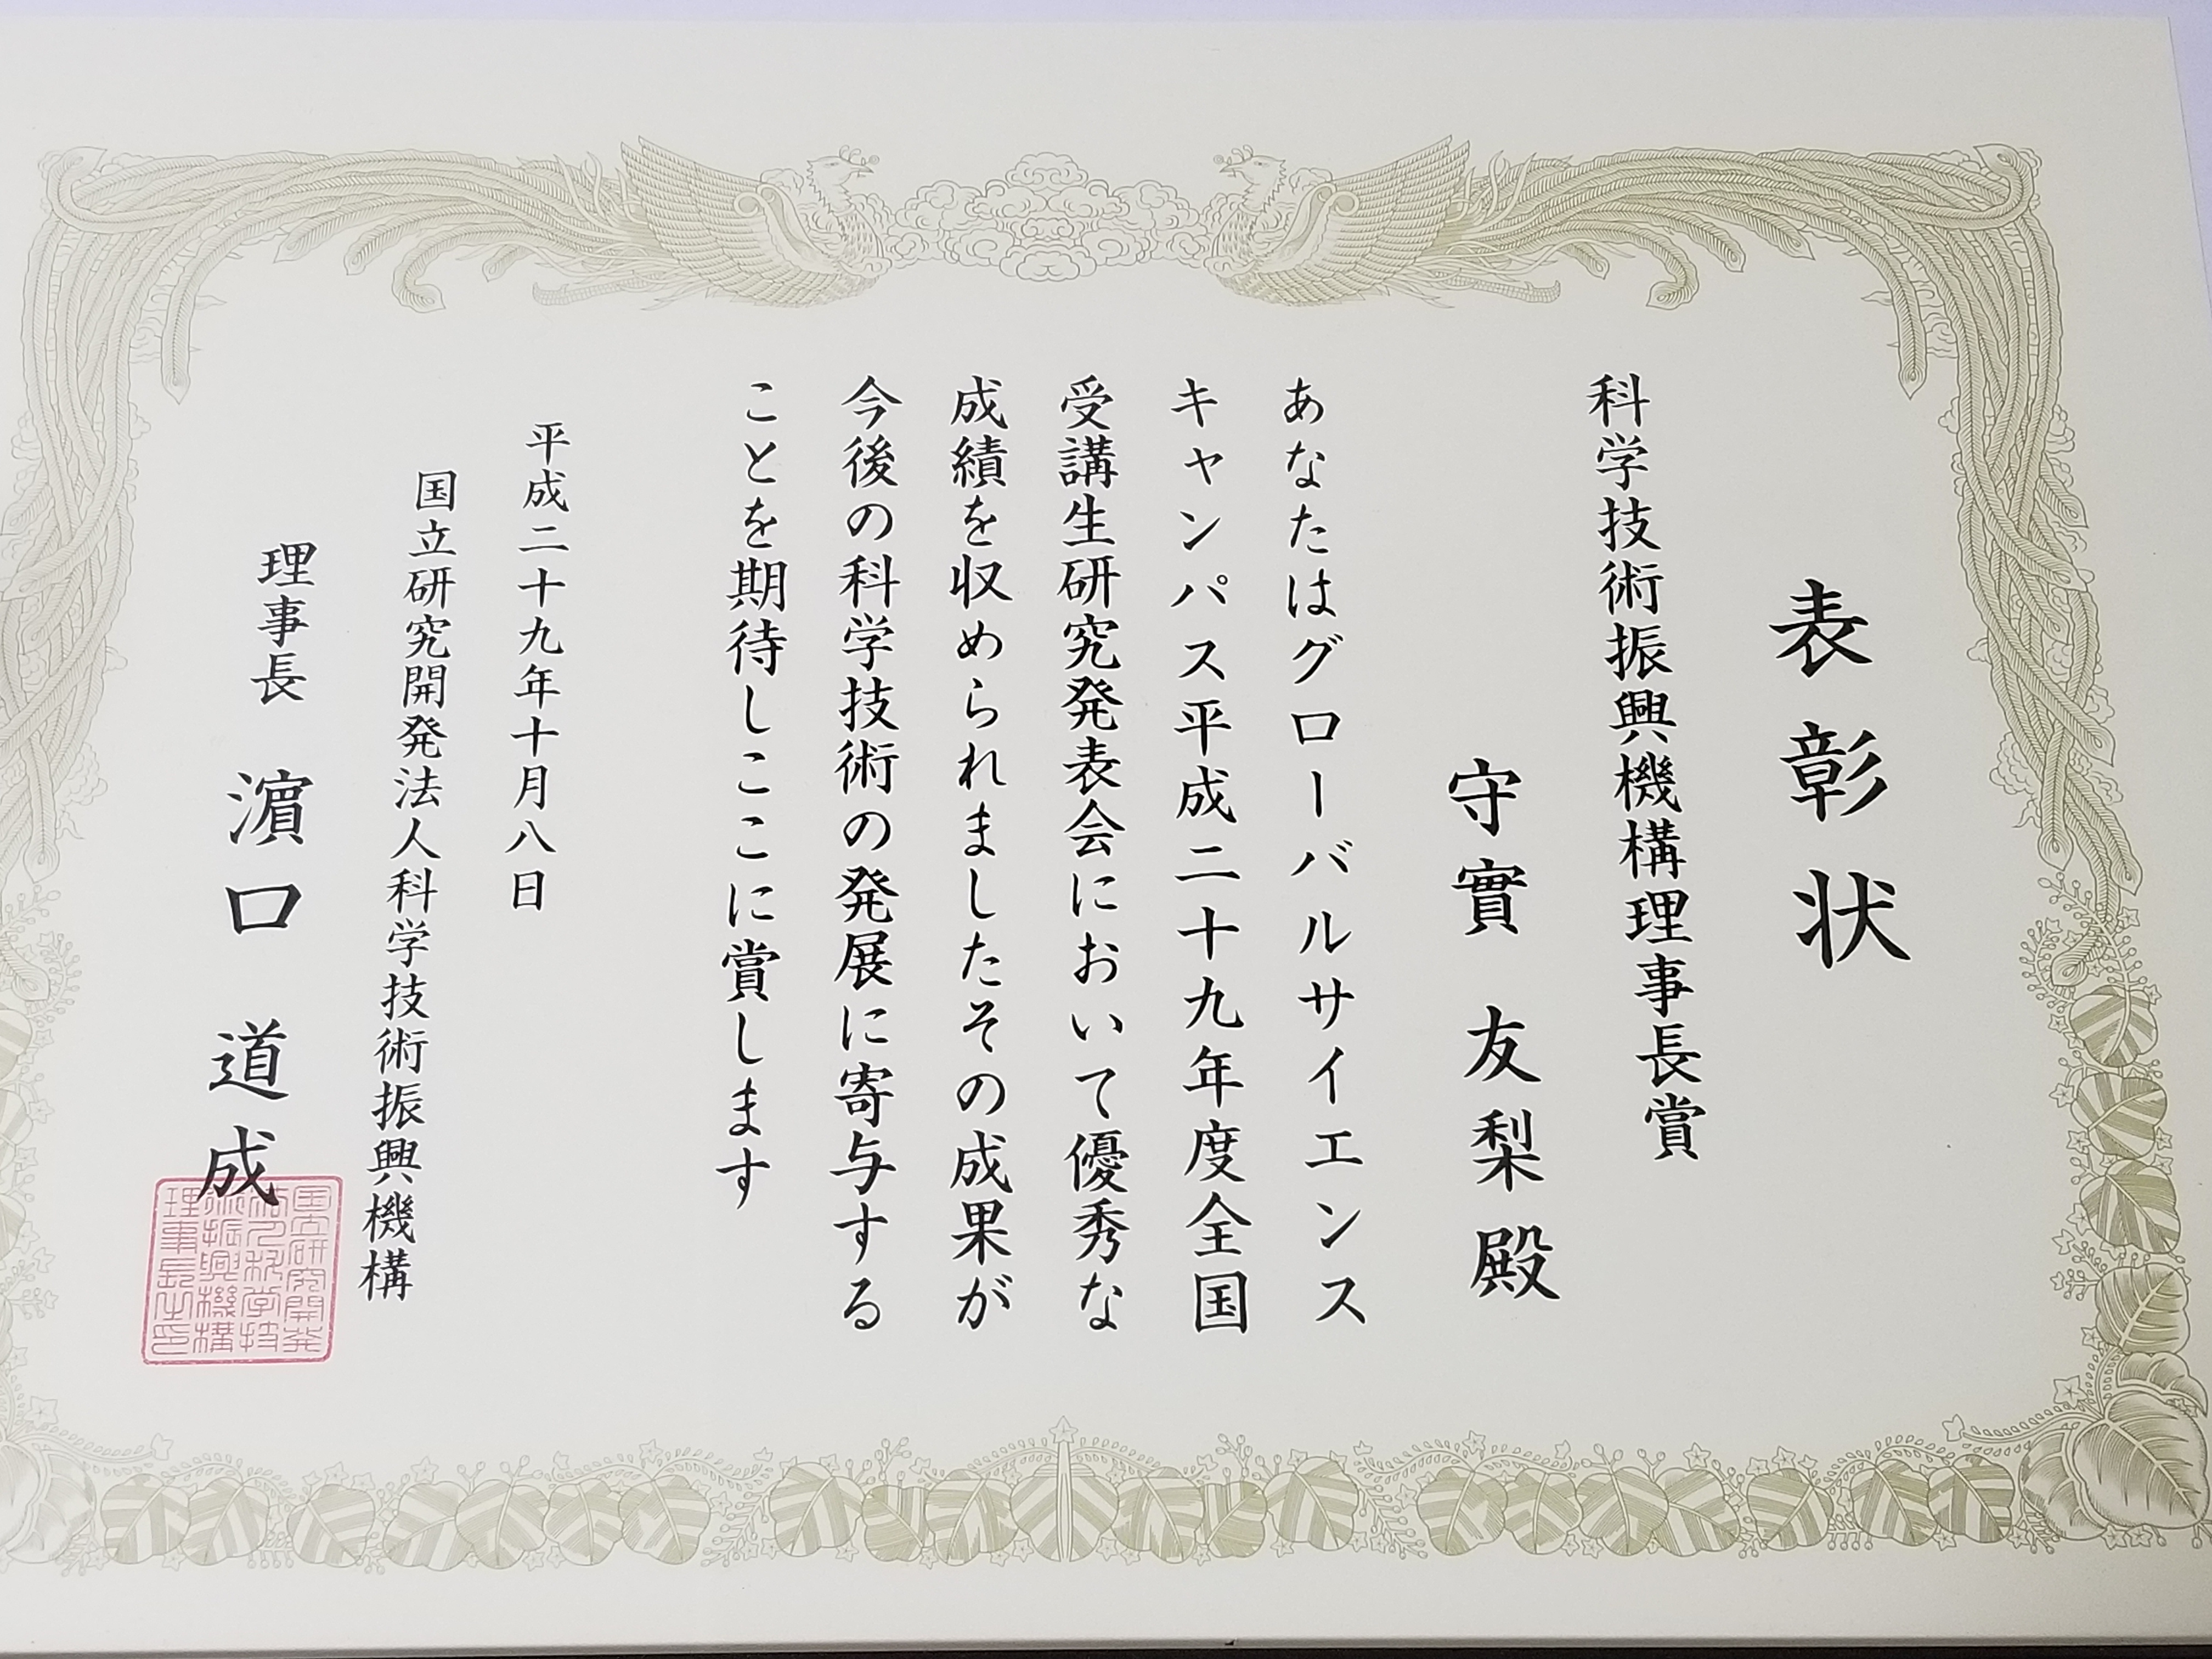 表彰状
科学技術振興機構理事長賞
守實 友梨 殿
あなたはグローバルサイエンス
キャンパス平成二十九年度全国
受講生研究発表会において優秀な
成績を収められましたその成果が
今後の科学技術の発展に寄与する
ことを期待しここに賞します
平成二十九年十月八日
国立研究開発法人科学技術振興機構
理事長 濵口 道成
国立研究開発
法人科学技
術振興機構
理事長之印